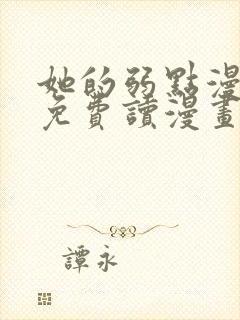 她的弱點漫
免費讀漫畫
譚永